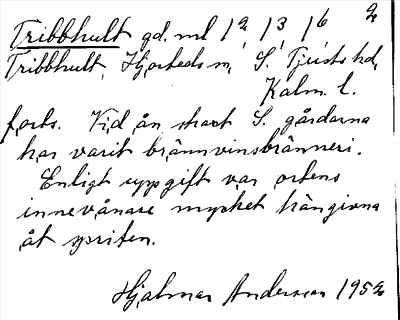 Tribbhult gd. ml 1/2, 1/3, 1/6 2
Tribbhult, Hjorteds sn, S. Tjusts hd,
Kalm. l.
forts. Vid ån strax S. gårdarna
har varit brännvinsbränneri.
Enligt uppgift var ortens
innevånare mycket hängivna
åt spriten.
Hjalmar Andersson 1952